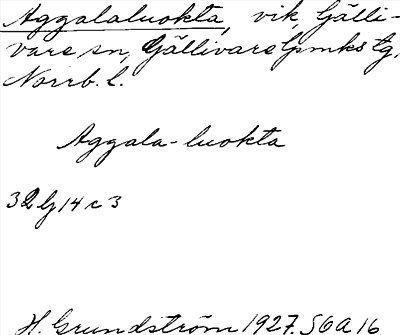 Aggalaluokta, vik, Gälli-
vare sn, Gällivare lpmks tg,
Norrb. l.
Aggala-luokta
32 lj 14 c 3
H. Grundström 1927. S6A16